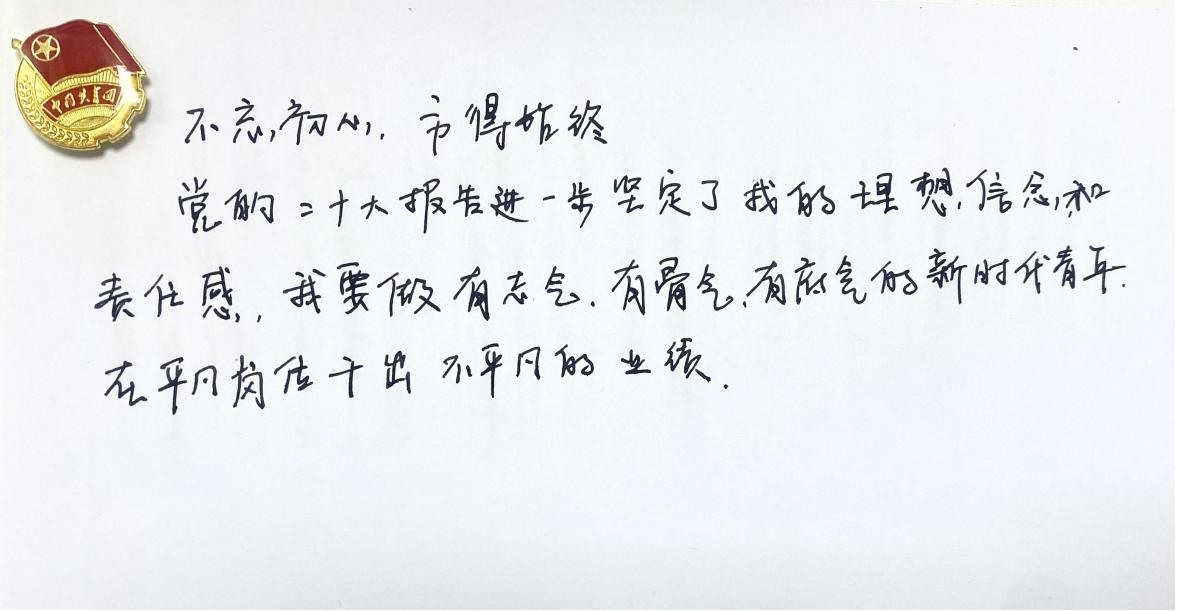 中国共青团
不忘初心,方得始终
党的二十大报告进一步坚定了我的理想、信念、和
责任感,我要做有志气、有骨气、有底气的新时代青年.
在平凡岗位干出不平凡的业绩.